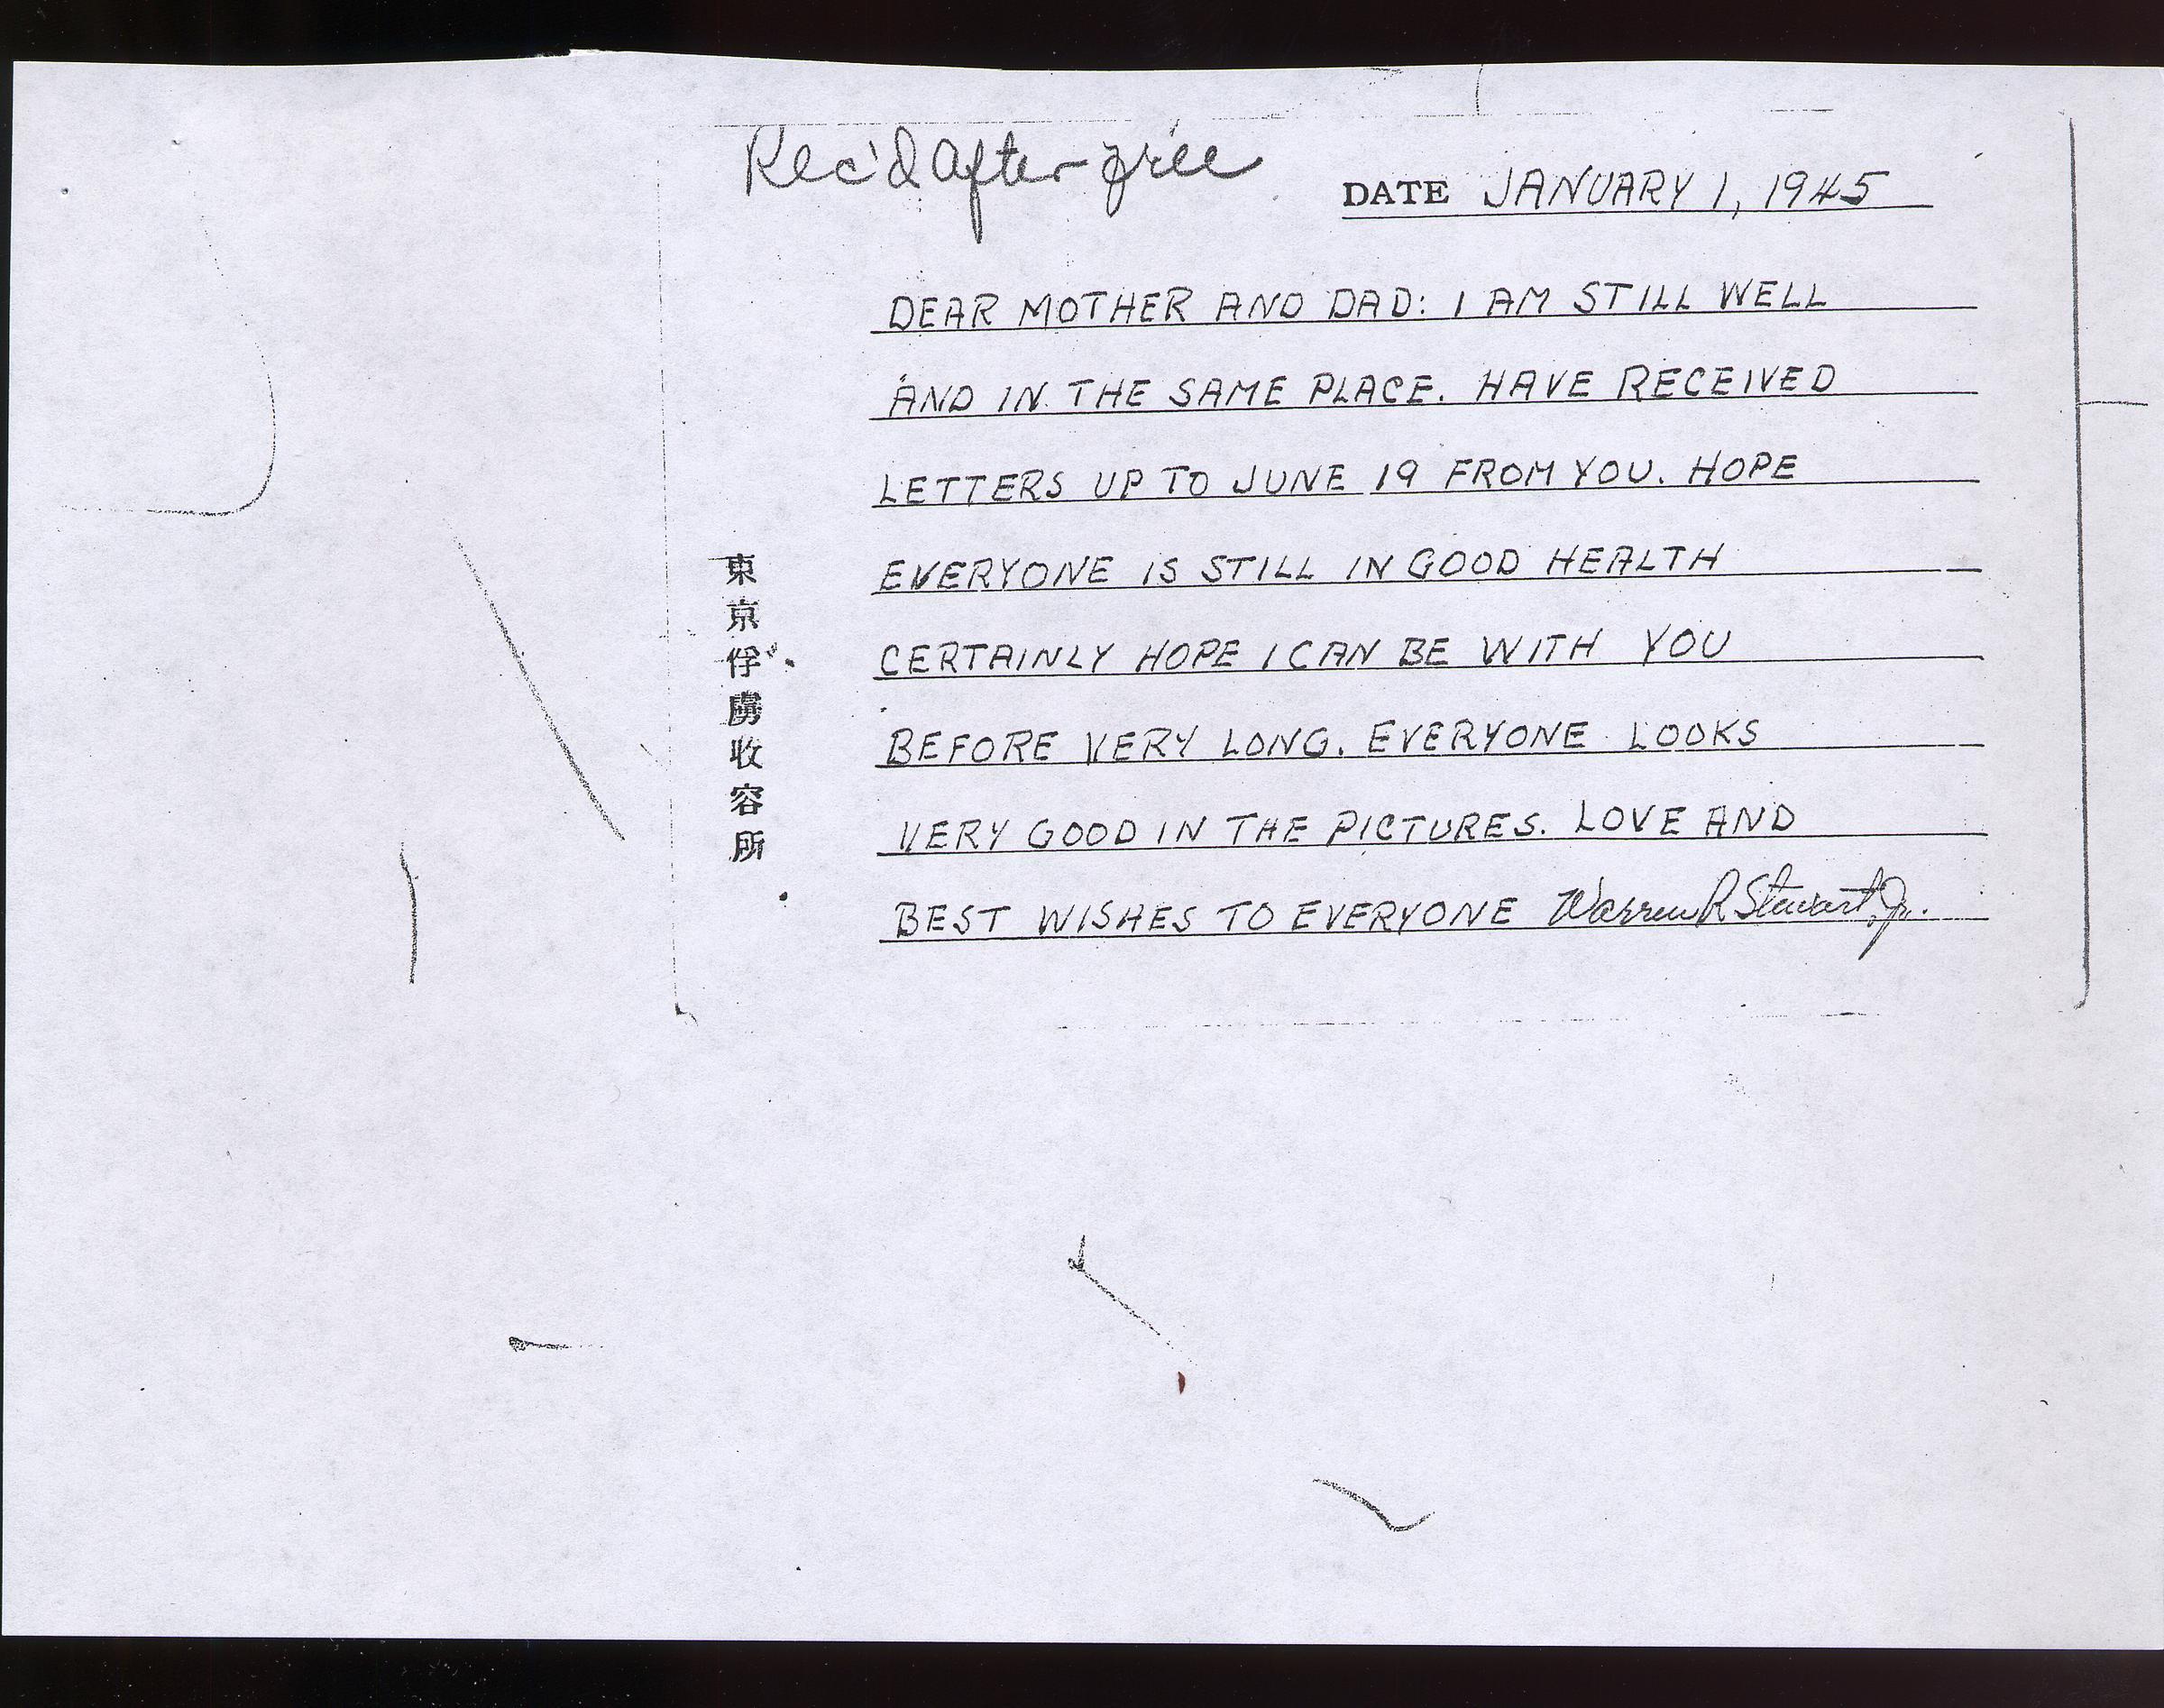 Rec'd after free
DATE JANUARY 1, 1945
DEAR MOTHER AND DAD: I AM STILL WELL
AND IN THE SAME PLACE. HAVE RECEIVED
LETTERS UP TO JUNE 19 FROM YOU. HOPE
EVERYONE IS STILL IN GOOD HEALTH
CERTAINLY HOPE I CAN BE WITH YOU
BEFORE VERY LONG. EVERYONE LOOKS
VERY GOOD IN THE PICTURES. LOVE AND
BEST WISHES TO EVERYONE Warren R Stewart, Jr.
東京俘虜收容所